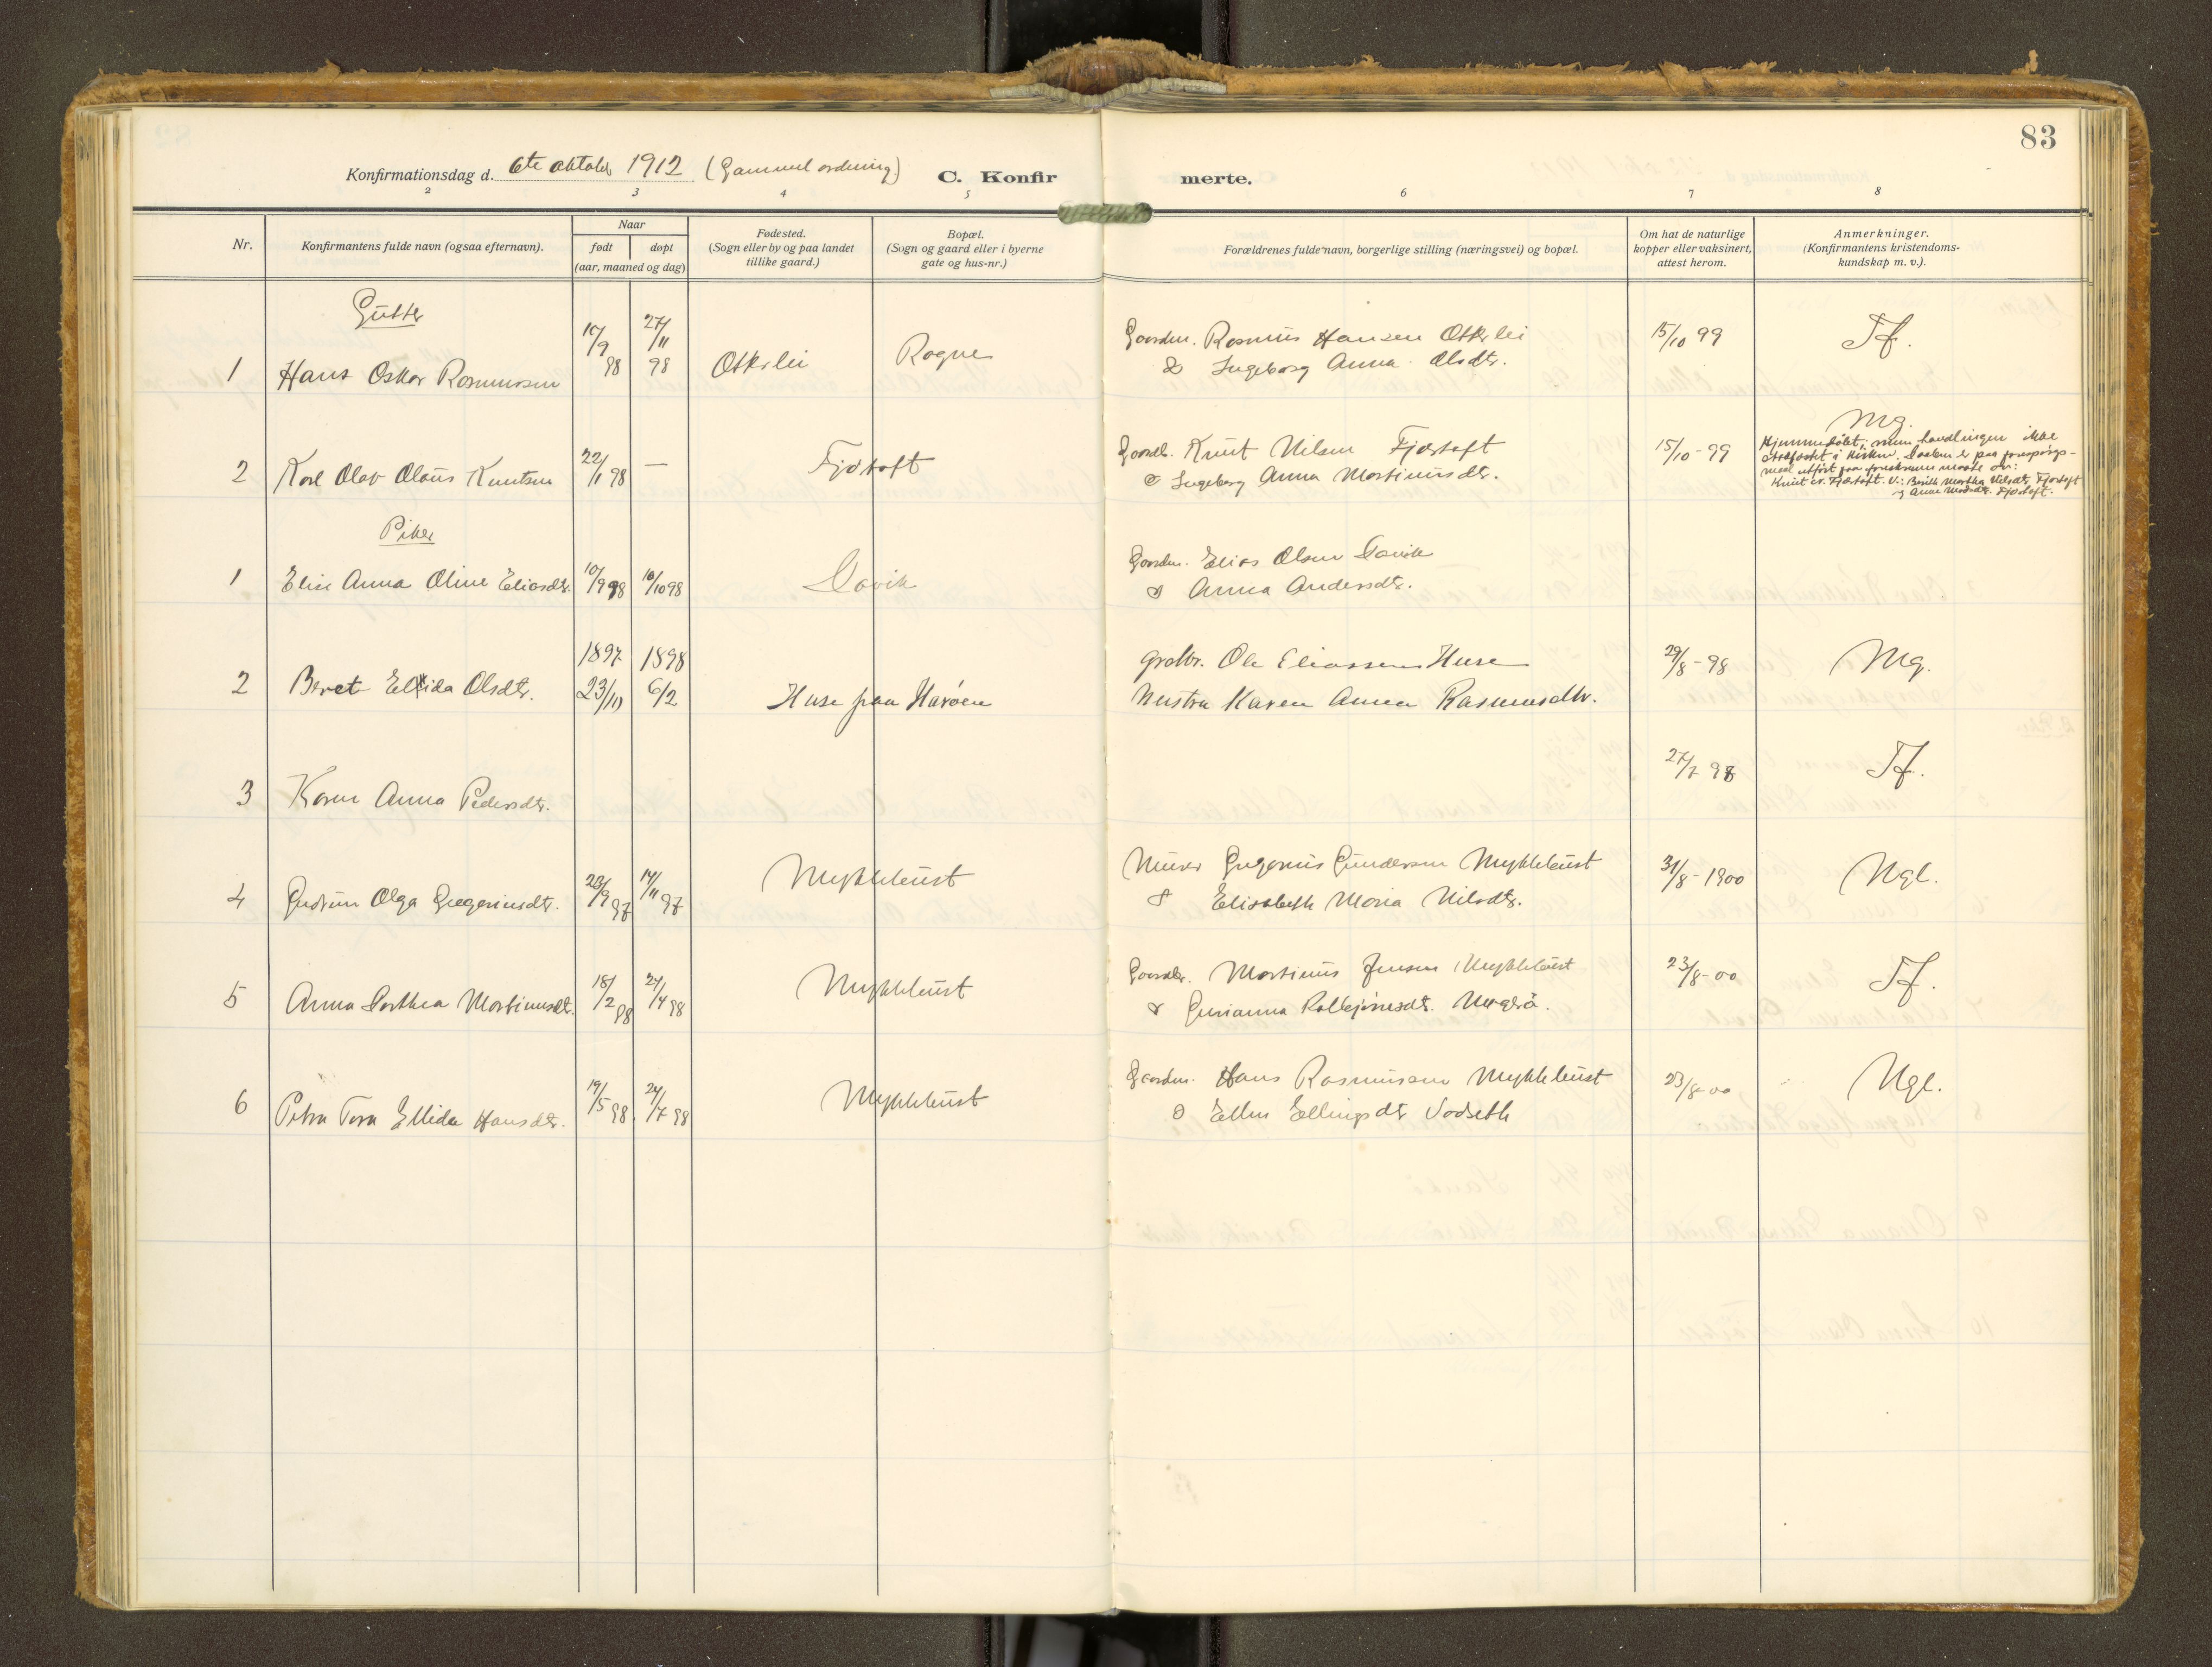 83
Konfirmationsdag d. 6te oktober 1912 (Gammel ordning) C. Konfirmerte.
2 3 4 5 6 7 8
Nr.
Konfirmantens fulde navn (ogsaa efternavn).
Naar
født døpt
(aar, maaned og dag)
Fødested.
(Sogn eller by og paa landet
tillike gaard.)
Bopæl.
(Sogn og gaard eller i byerne
gate og hus-nr.)
Forældrenes fulde navn, borgerlige stilling (næringsvei) og bopæl.
Om hat de naturlige
kopper eller vaksinert,
attest herom.
Anmerkninger.
(Konfirmantens kristendoms-
kundskap m. v.).
Gutter
1 Hans Oskar Rasmussen 19/9 98 27/11 98 Otkslei Rogne
Gaardm. Rasmus Hansen Otkslei
& Ingeborg Anna Olsdtr.
15/10 99 Tf.
2 Karl Olav Olaus Knutsen 22/1 98 — Fjørtoft
Gaardb. Knut Nilsen Fjørtoft
& Ingeborg Anna Martinusdtr.
15/10-99 Mg.
Hjemmedøbt, men handlingen ikke
stadfæstet i kirken. Daaben er paa forespørgs-
maal utført paa foreskreven maate av:
Knut N. Fjørtoft. V.: Berith Martha Nilsdtr. Fjørtoft
og Anne Madsdtr. Fjørtoft.
Piker
1 Elise Anna Oline Eliasdtr. 10/9 98 16/10 98 Davik
Gaardm. Elias Olsen Davik
& Anna Andersdtr.
2 Beret Ellida Olsdtr. 1897 23/10 1898 6/2 Huse paa Harøen
Grdbr. Ole Eliassen Huse
Hustru Karen Anna Rasmusdtr.
29/8-98 Mg.
3 Karen Anna Pedersdtr.
27/7 98 Tf.
4 Gudrun Olga Gregoriusdtr. 23/9 97 14/11 97 Myklebust
Murer Gregorius Gundersen Myklebust
& Elisabeth Maria Nilsdtr.
31/8-1900 Ngl.
5 Anna Dorthea Martinusdtr. 18/2 98 24/4 98 Myklebust
Gaardbr. Martinus Jensen Myklebust
& Gurianna Kolbejørnsdtr.
23/8-00 Tf.
6 Petra Tora Ellida Hansdtr. 19/5 98 24/7 98 Myklebust
Gaardm. Hans Rasmussen Myklebust
& Ellen Ellingsdtr Vadseth
23/8-00 Ngl.